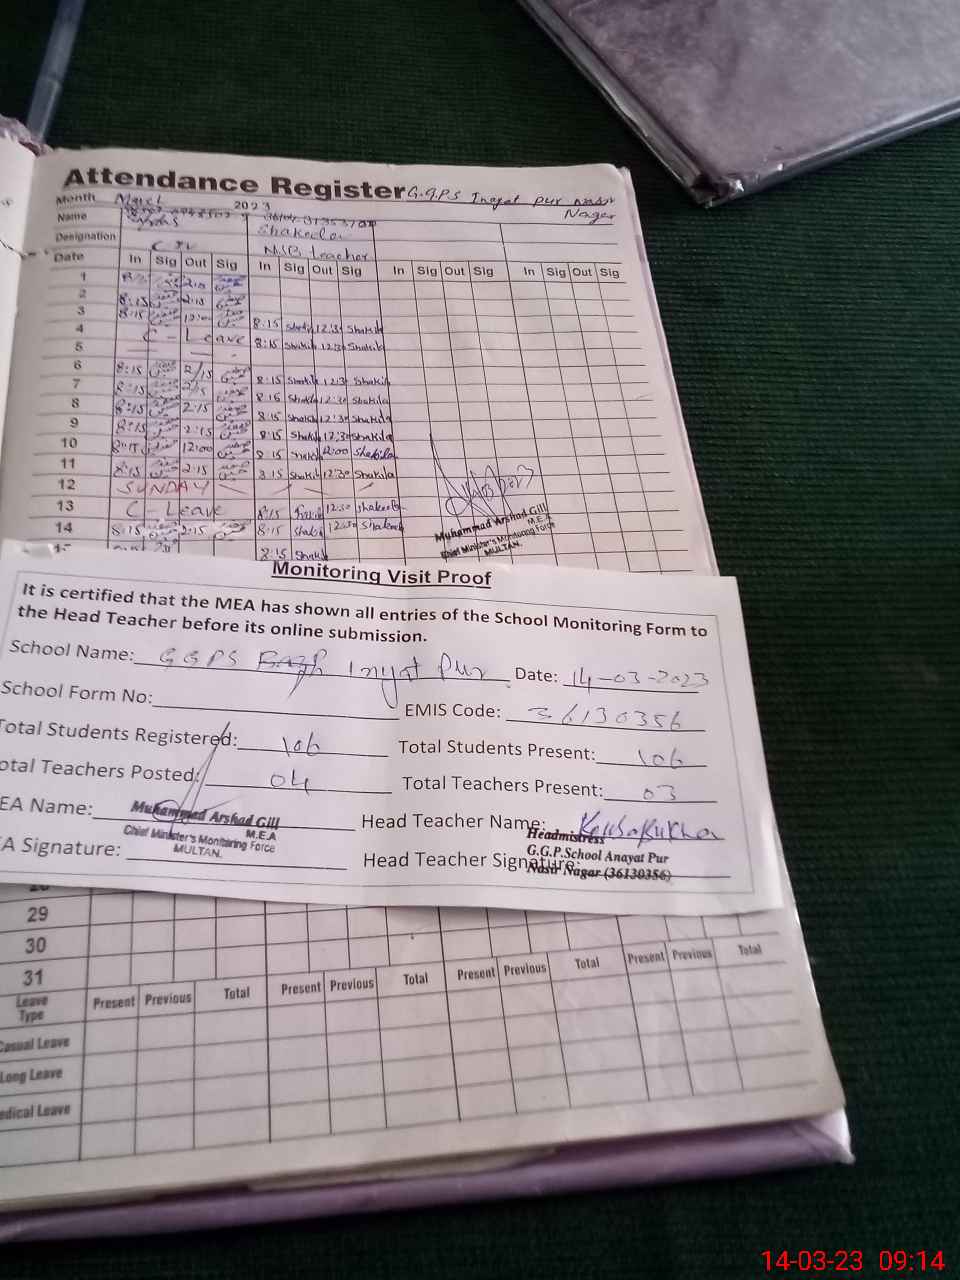 Attendance Register G.G.P.S Inayat pur nasir Nagar
Month March 2023
Name Shakeela
Designation NSB teacher
Date In Sig Out Sig In Sig Out Sig In Sig Out Sig In Sig Out Sig
1 2:15
2 8:15 2:15
3 8:15 12:00 8:15 12:30 Shakila
4 C - Leave 8:15 Shakila 12:30 Shakila
5
6 8:15 2/15 8:15 Shakila 12:30 Shakila
7 8:15 2/15 8:15 Shakila 12:30 Shakila
8 8:15 2:15 8:15 Shakila 12:30 Shakila
9 8:15 2:15 8:15 Shakila 12:30 Shakila
10 8:15 12:00 8:15 12:00 Shakila
11 8:15 2:15 8:15 Shakila 12:30 Shakila
12 SUNDAY
13 C - Leave 8:15 12:30 Shakeela
14 8:15 2:15 8:15 Shakila 12:30 Shakeela
8:15 Shakila
Muhammad Arshad Gill
M.E.A
Chief Minister's Monitoring Force
MULTAN.
Monitoring Visit Proof
It is certified that the MEA has shown all entries of the School Monitoring Form to
the Head Teacher before its online submission.
School Name: GGPS Inyat Pur Date: 14-03-2023
School Form No: EMIS Code: 36130356
Total Students Registered: 106 Total Students Present: 106
otal Teachers Posted: 04 Total Teachers Present: 03
EA Name: Muhammad Arshad Gill Head Teacher Name:
M.E.A
Chief Minister's Monitoring Force
MULTAN.
Headmistress
G.G.P.School Anayat Pur
Nasir Nagar (36130356)
A Signature: Head Teacher Signature:
29
30
31
Leave Type Present Previous Total Present Previous Total Present Previous Total Present Previous Total
Casual Leave
Long Leave
edical Leave
14-03-23 09:14